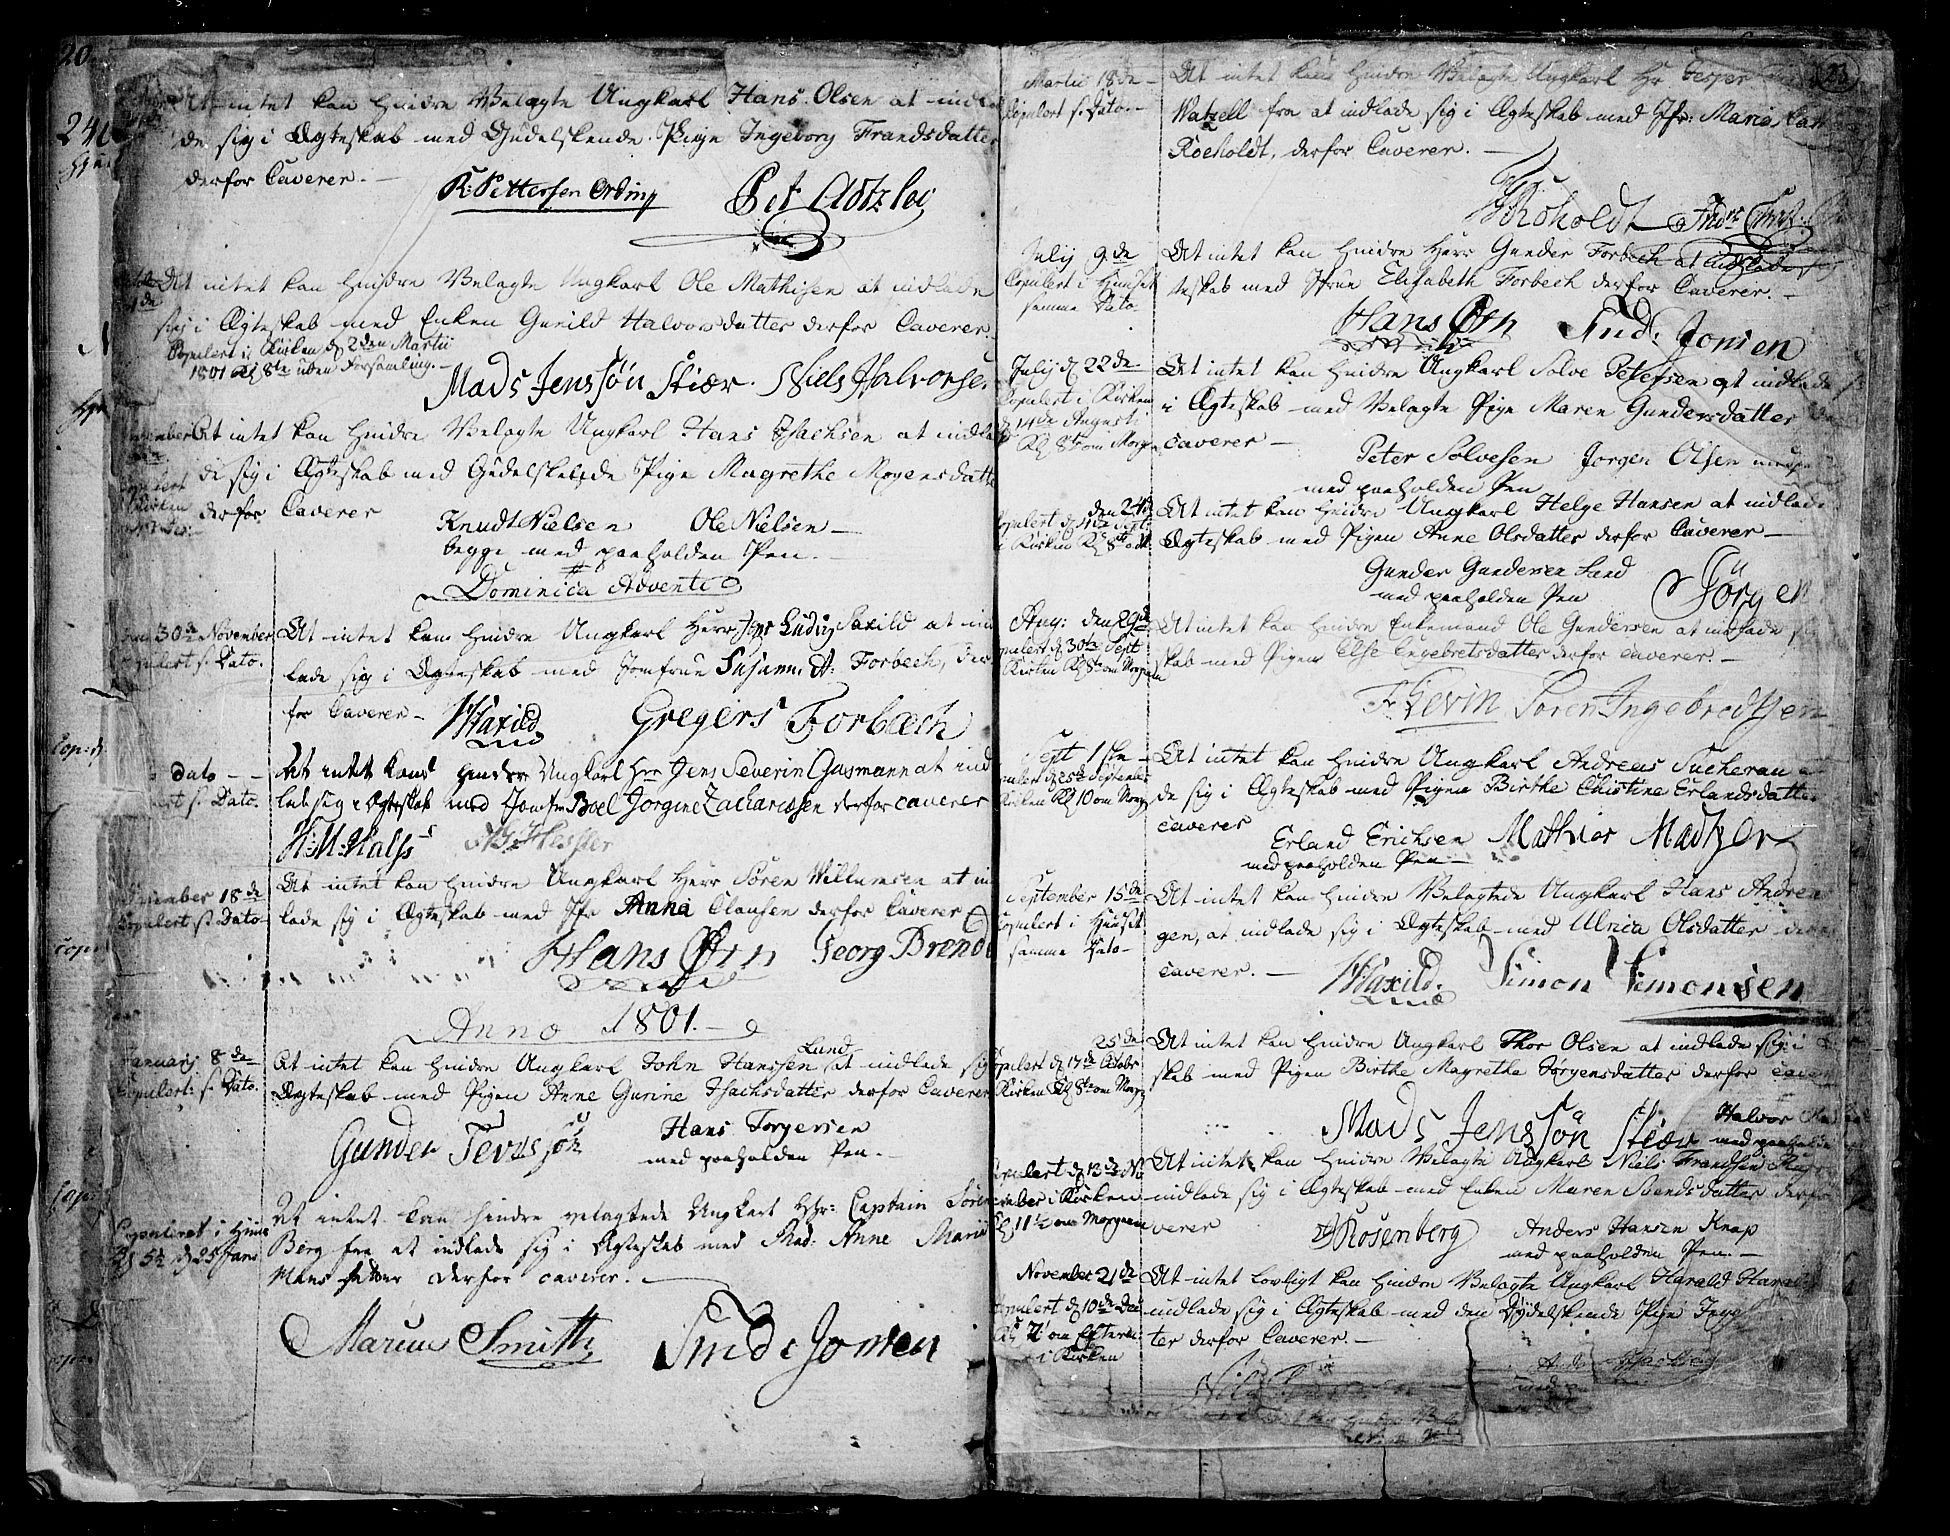 20.
At intet kan hindre Velagte Ungkarl Hans Olsen at indla
de sig i Ægteskab med Gudelskende Pige Ingeborg Frandsdatter
derfor Caverer. —
R: Pettersen Ording Pet Clotzley
At intet kan hindre Velagte Ungkarl Ole Mathisen at indlade
sig i Ægteskab med Enken Gunild Halvorsdatter derfor Caverer.
Copulert i Kirken d 2den Martii
1801 Kl 8te uden Forsamling. —
Mads Jenssøn Stiær. Niels Halvorse
At intet kan hindre Velagte Ungkarl Hans Isachsen at indla
de sig i Ægteskab med Gudelskende Pige Magrethe Mogensdatte
derfor Caverer
Knudt Nielsen Ole Nielsen —
begge med paaholden Pen. —
Dominica Adventi
30de November
Copulert s. Dato.
At intet kan hindre Ungkarl Herr Ludvig Saxild at in
lade sig i Ægteskab med Jomfrue Susanne A: Forbech, der
for Caverer —
HSaxild Gregers Forbæch
Dato — —
s. Dato.
At intet kand hindre Ungkarl Hrr Jens Severin Gasmann at ind
lade sig i Ægteskab med Jomfr Boel Jorgine Zachariesen derfor caverer
H: M: Halss
18de
Copulert s. Dato
At intet kan hindre Ungkarl Herr Sören Willumsen at in
lade sig i Ægteskab med Jfr Anna Clausen derfor Caverer
Hans Ørn Georg Brend
Anno 1801. —
Januarj 8de
Copulert s. Dato.
At intet kan hindre Ungkarl John Hanssen Lund at indlade sig
Ægteskab med Pigen Anne Gurine Isachsdatter derfor Caverer
Gunder Tevesøn Hans Torgersen
med paaholden Pen. —
Copuleret i Huus
Kl 5½ d 25 Jani
At intet kan hindre velagtede Ungkarl Hr: Captain Sören
Berg fra at indlade sig i Ægteskab med Mad: Anne Marie
derfor caverer. —
Marius Smith And: Jonsen
Martii 18de —
Copulert s. Dato. —
At intet kan hindre Velagte Ungkarl Hr Jesper
Watzell fra at indlade sig i Ægteskab med Jfr: Maria Cat
Roeholdt, derfor Caverer. —
Roholdt
Julij 9de
Copulert i Huuset
samme Dato.
At intet kan hindre Herr Gunder Forbech at indlade
teskab med Jfrue Elisabeth Forbech derfor Caverer. —
Hans Ørn And: Jonsen
Julij d 22de
Copulert i Kirken
d 14de Augusti
Kl 8te om Morg
At intet kan hindre Ungkarl Solve Petersen at indlade
i Ægteskab med Velagte Pige Maren Gundersdatter
caverer —
Peter Solvesen Jorgen Olsen
med paaholden Pen
den 24de
Copulert d 1ste Sept:
i Kirken Kl 8te
At intet kan hindre Ungkarl Helge Hansen at indlade
Ægteskab med Pigen Anne Olsdatter derfor Caverer —
Gunder Gundersen Sand
med paaholden Pen
Jörgen
Aug: den 29de
Copulert d 30te Sept
i Kirken Kl 8te om Morgenen
At intet kan hindre Enkemand Ole Gundersen at indlade
skab med Pigen Else Engebretsdatter derfor caverer. —
F: Grevin Soren Ingebredtsen
Sept 1ste —
Copulert d 25de September
i Kirken Kl 10 om Morg
At intet kan hindre Ungkarl Andreas
de sig i Ægteskab med Pigen Birthe Christine Erlandsdatter
caverer
Erland Erichsen Mathias Madtzen
med paaholden Pen —
September 15de
Copulert i Huuset
samme Dato —
At intet kan hindre Velagtede Ungkarl Hans Andrea
gen, at indlade sig i Ægteskab med Ulrica Olsdatter
caverer. —
HSaxild. Simon Simonsen
25de
Copulert d 17de Octobr
i Kirken Kl 8te om Morg
At intet kan hindre Ungkarl Thor Olsen at indlade sig i
skab med Pigen Birthe Magrethe Jørgensdatter derfor cave
Mads Jenssøn Stiær Halvor
med paaholden
Copulert d 13de No
vember i Kirken
Kl 11½ om Morgenen
At intet kan hindre Velagte Ungkarl Niels Frandsen
indlade sig i Ægteskab med Enken Maren Svendsdatter derfor
verer
Rosenberg Anders Hansen Knap
med paaholden Pen. —
November 21de
Copulert d 10de Dec
Kl 2 om Efterm:
i Kirken
At intet lovligt kan hindre Velagte Ungkarl Harald Haral
indlade sig i Ægteskab med den Dydelskende Pige Inge
ter derfor Caverer. —